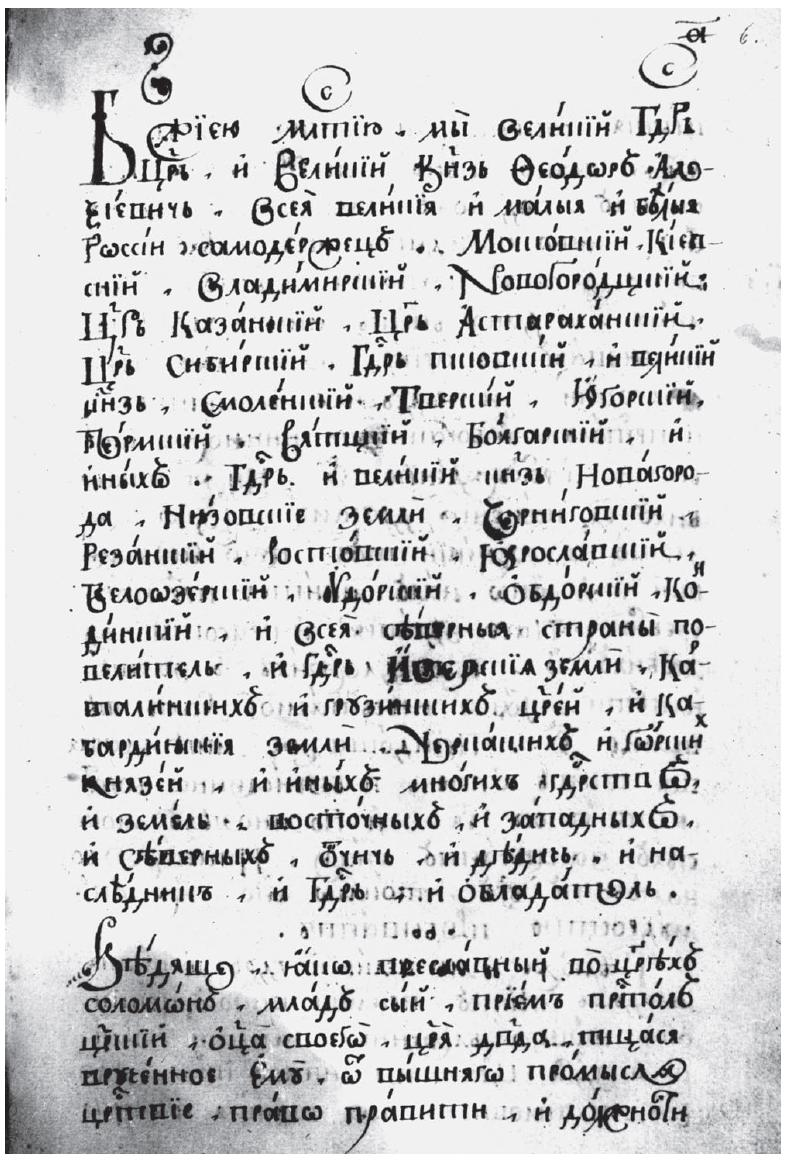 а҃ 6.
с с
Бжїею млтїю . мы̀ вели́кїй Гдⷭ҇рь
Цр҃ь . и҆ Вели́кїй Кн҃зь Ѳео́дѡръ Але-
ѯі́евичь . Всея̀ вели́кїя и҆ ма́лыя и҆ бѣ́лыя
Россі́и самоде́ржецъ . Моско́вскїй . Кі́ев-
скїй . Влади́мирскїй . Новогоро́дцкїй .
Цр҃ь Каза́нскїй . Цр҃ь А҆стараха́нскїй .
Цр҃ь Сиби́рскїй . Гдⷭ҇рь пско́вскїй . и҆ вели́кїй
кн҃зь . Смоле́нскїй . Тве́рскїй . Ю҆го́рскїй .
Пе́рмскїй . Вя́тцкїй . Болга́рскїй . и҆
и҆ны́хъ . Гдⷭ҇рь . и҆ вели́кїй кн҃зь Нова́горо-
да . Низо́вскїе землѝ . Черни́говскїй .
Реза́нскїй . Росто́вскїй . Яросла́вскїй .
Белоѡзе́рскїй . Удо́рскїй . Ѻбдо́рскїй . Ко-
ди́нскїй . и҆ всея̀ сѣ́верныя страны̀ по-
вели́тель . и҆ Гдⷭ҇рь И҆́верскїя землѝ . Ка-
тали́нскихъ и҆ грузи́нскихъ цр҃е́й . и҆ Ка-
барди́нскїя землѝ . Черка́скихъ и҆ го́рскиⷯ
князе́й . и҆ и҆ны́хъ мно́гихъ гдⷭ҇рствъ .
и҆ земе́ль . восто́чныхъ . и҆ за́падныхъ .
и҆ сѣ́верныхъ . ѻ҆́тчичь . и҆ дѣ́дичь . и҆ на-
слѣ́дникъ . и҆ Гдⷭ҇рь . и҆ ѻ҆блада́тель .
Вѣ́дяще . ꙗ҆́кѡ пресла́вный во цр҃ѣ́хъ
соломѡ́нъ . мла́дъ сы́й . прїе́мъ прⷭ҇то́лъ
цр҃скїй . ѻ҆ц҃а̀ своегѡ̀ . цр҃я̀ дв҃да . тща́ся
врꙋче́нное є҆мꙋ̀ . ѿ вы́шнягѡ про́мысла
црⷭ҇твїе . пра́вѡ пра́вити . и҆